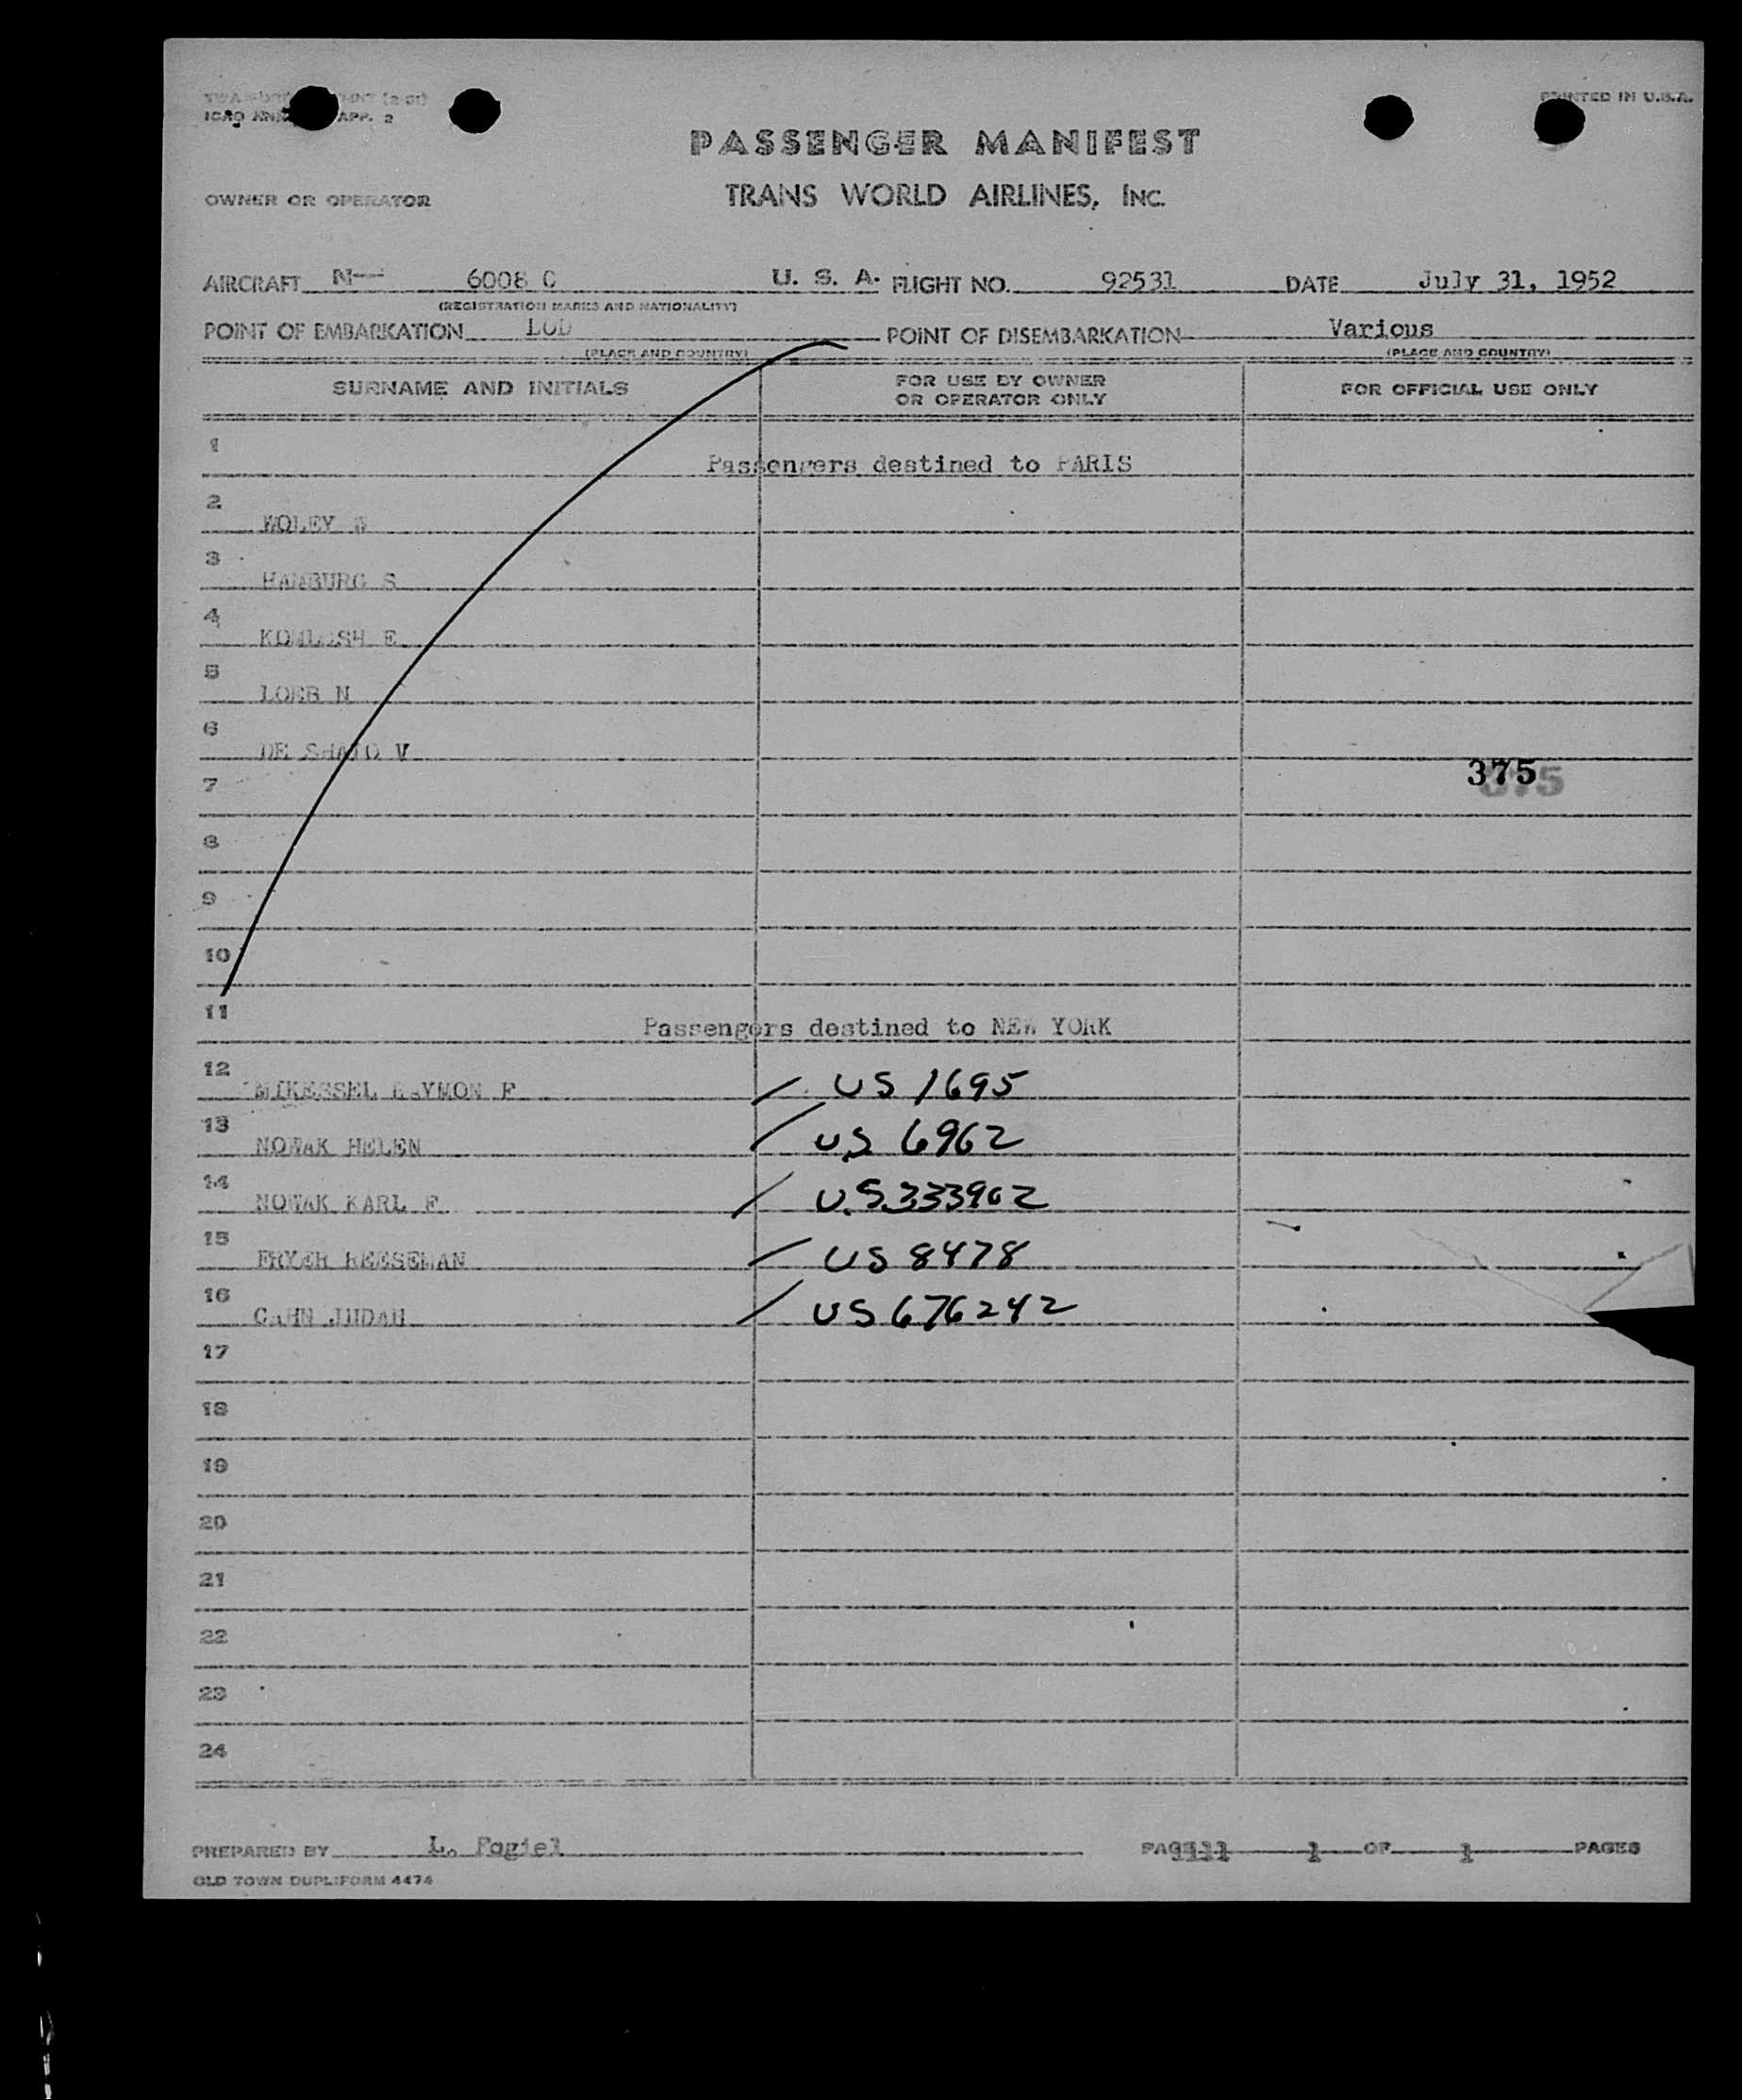 ICAO APP. 2
PRINTED IN U.S.A.
PASSENGER MANIFEST
OWNER OR OPERATOR TRANS WORLD AIRLINES, INC.
AIRCRAFT N— 6008 C U. S. A. FLIGHT NO. 92531 DATE July 31, 1952
(REGISTRATION MARKS AND NATIONALITY)
POINT OF EMBARKATION LOD POINT OF DISEMBARKATION Various
(PLACE AND COUNTRY) (PLACE AND COUNTRY)
SURNAME AND INITIALS FOR USE BY OWNER OR OPERATOR ONLY FOR OFFICIAL USE ONLY
1 Passengers destined to PARIS
2 WOLEY
3 HAMBURG S
4 E
5 LOEB N
6 DE V
375
7
8
9
10
11 Passengers destined to NEW YORK
12 MIKESSEL RAYMON F / US 1695
13 NOWAK HELEN / US 6962
14 NOWAK KARL F / U.S.333902
15 FRYER REESEMAN / US 8478
16 CAHN JUDAH / US 676242
17
18
19
20
21
22
23
24
PREPARED BY L. Fogiel 1 OF 1 PAGES
OLD TOWN DUPLIFORM 4474